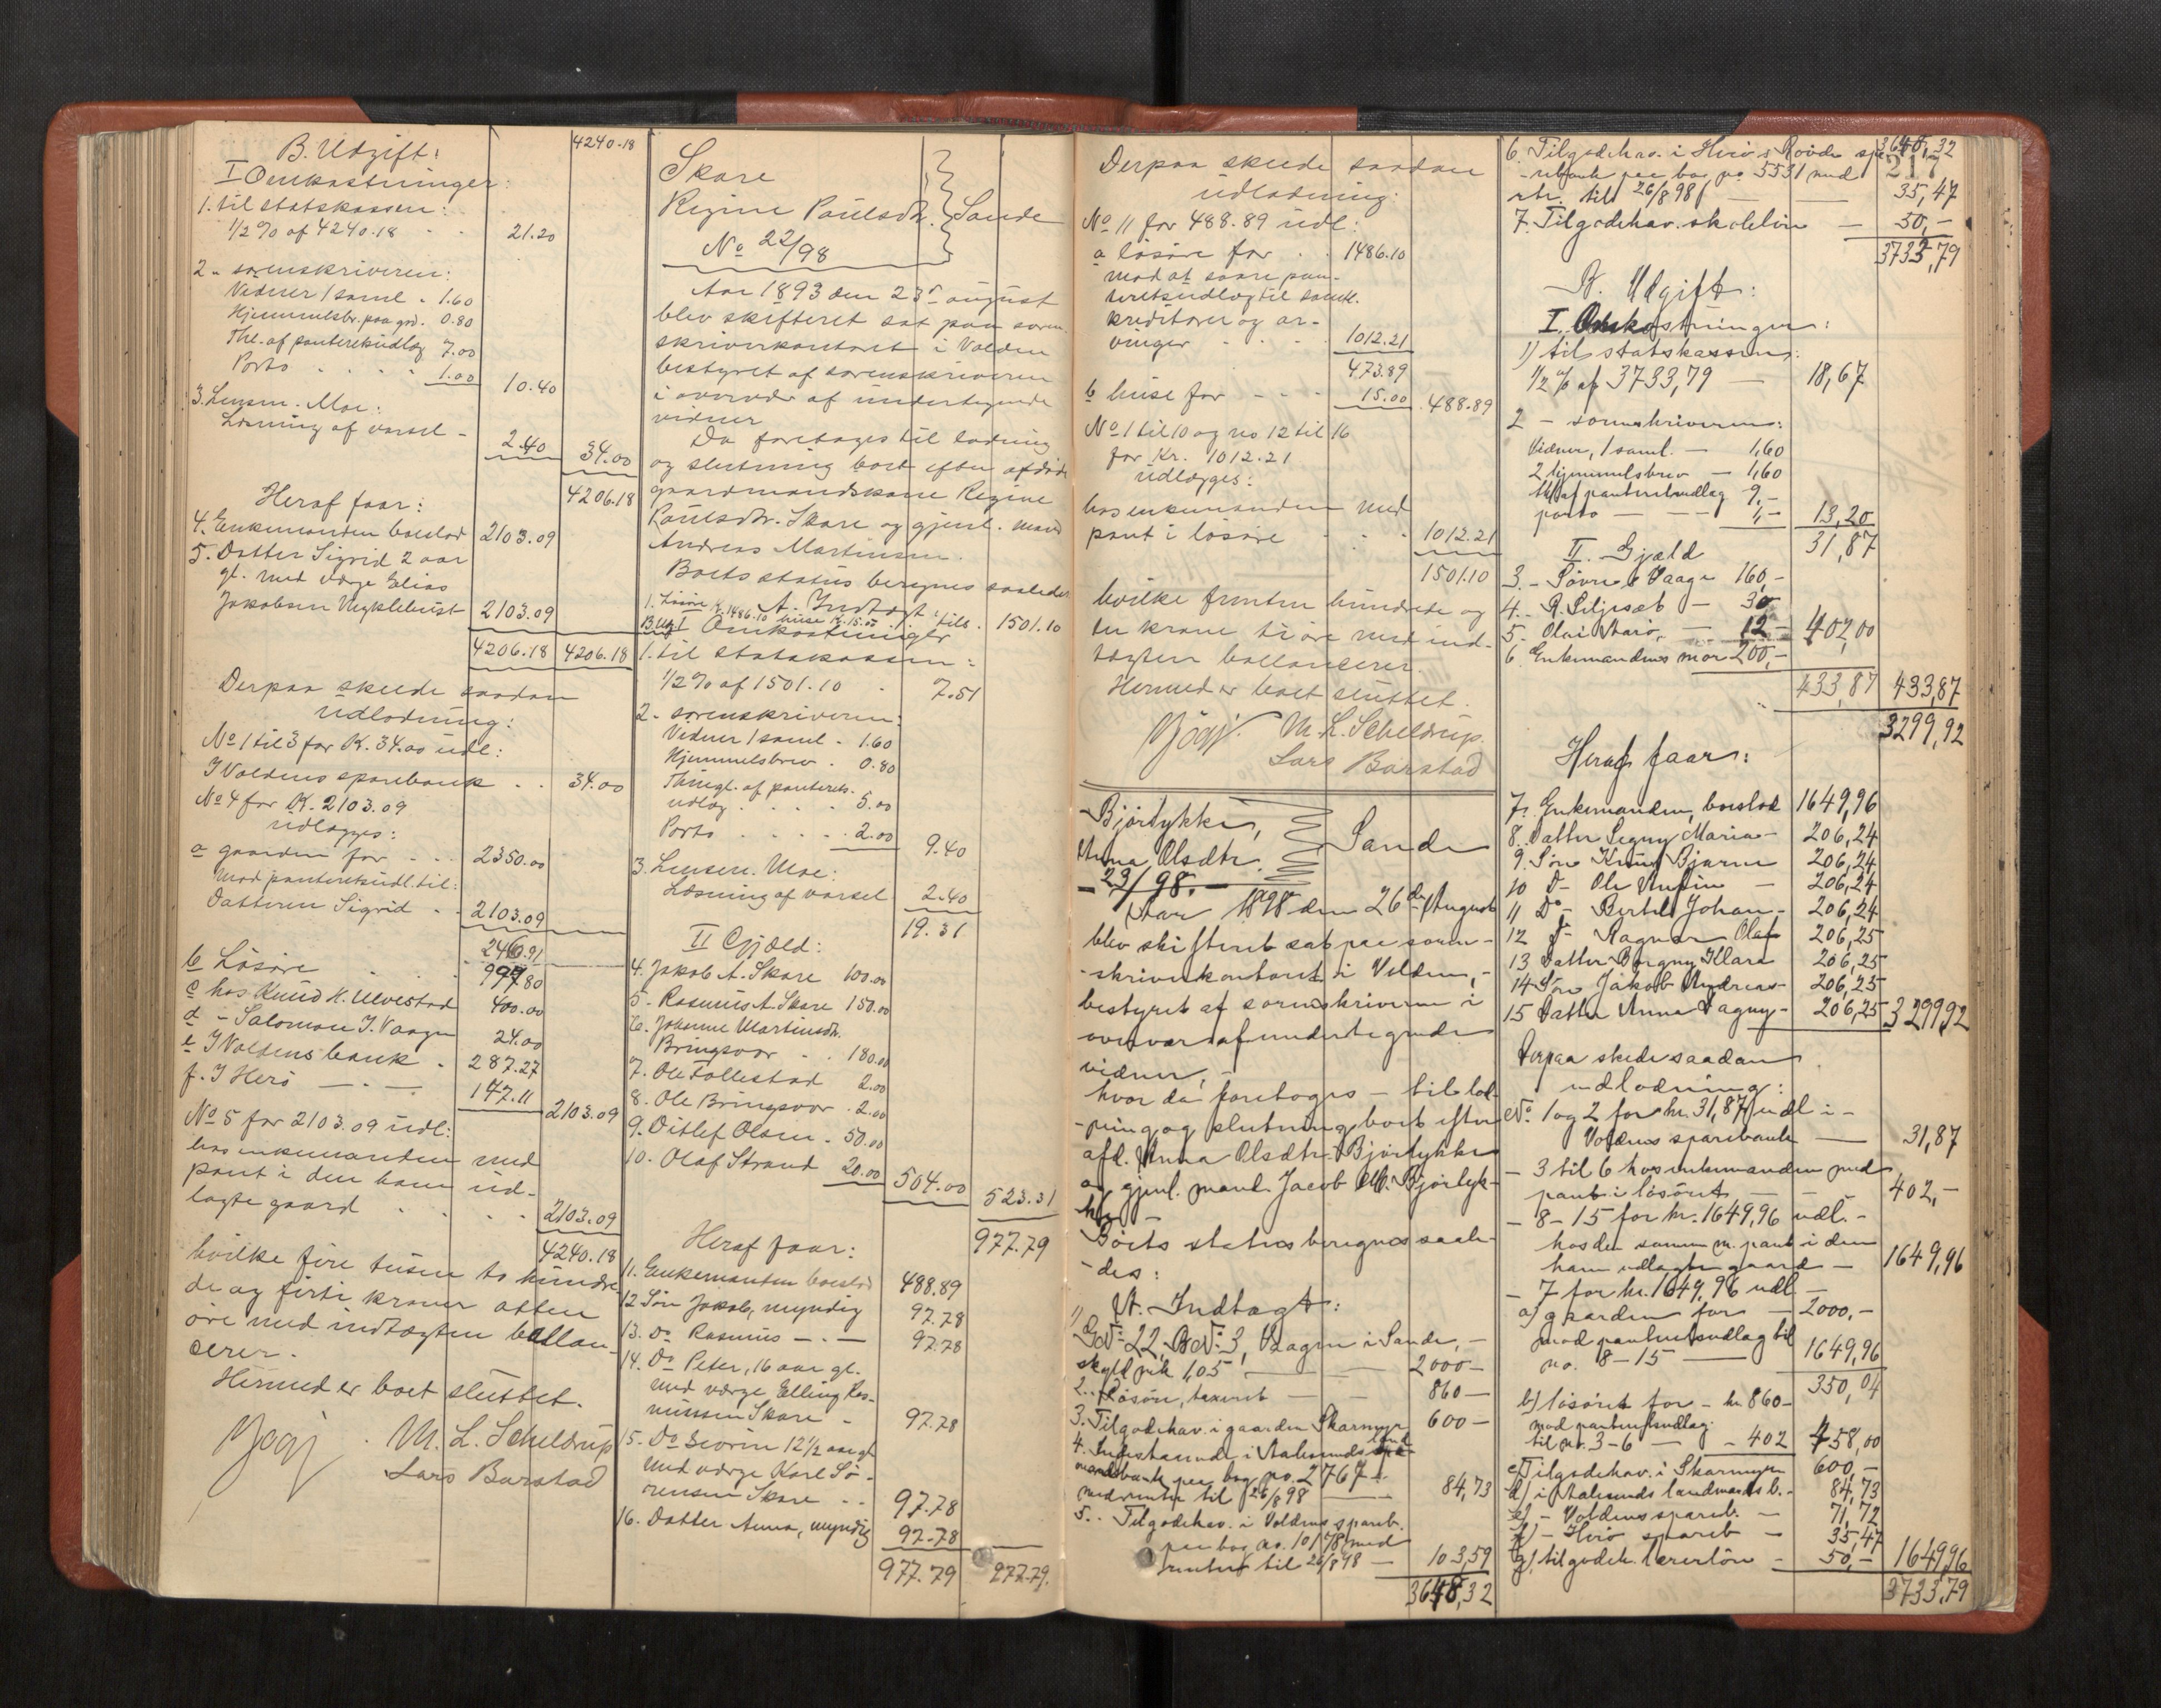 B. Udgift: 4240.18
I Omkostninger:
1. til statskassen:
1/2 % af 4240.18 . . 21.20
2 - sorenskriveren:
Vidner 1 saml. - 1.60
Hjemmelsbr. paa grd. 0.80
Thl. af panteretsudlæg 7.00
Porto . . . . 1.00 10.40
3. Lensm. Moe:
Læsning af varsel - 2.40 34.00
4206.18
Heraf faar:
4. Enkemanden boeslod 2103.09
5. Datter Sigrid 2 aar
gl. med værge Elias
Jakobsen Myklebust 2103.09
4206.18 4206.18
Derpaa skeede saadan
udlodning:
No 1 til 3 for K. 34.00 udl:
I Voldens sparebank . . 34.00
No 4 for K. 2103.09
udlægges:
a gaarden for . . . 2350.00
mod panteretsudl. til:
Datteren Sigrid . . 2103.09
246.91
b Løsøre . . . 997.80
c hos Knud K. Ulvestad 400.00
d - Salomon J. Vaage 24.00
e I Voldens bank . 287.27
f. I Herø — . — 147.11 2103.09
No 5 for 2103.09 udl:
hos enkemanden med
pant i den ham ud-
lagte gaard . . . . 2103.09
4240.18
hvilke fire tusen to hundre-
de og førti kroner atten
øre med indtægten ballan-
cerer.
Hermed er boet sluttet.
M. L. Scheldrup
Lars Barstad
Skare
Regine Paulsdtr. Sande
No 22/98
Aar 1893 den 23de august
blev skifteret sat paa soren-
skriverkontoret i Volden
bestyret af sorenskriveren
i overvær af undertegnede
vidner
Da foretoges til lodning
og slutning boet efter afdøde
gaardmandskone Regine
Paulsdtr. Skare og gjenl. mand
Andreas Martinsen.
Boets status beregnes saaledes
A. Indtægt
1. Løsøre K. 1486.10 huse K. 15.00 tils. 1501.10
B. Udg. I Omkostninger
1. til statskassen:
1/2 % af 1501.10 . 7.51
2 - sorenskriveren:
Vidner 1 saml - 1.60
Hjemmelsbrev . 0.80
Thingl. af panterets-
udlæg . . . . 5.00
Porto . . . . . 2.00 9.40
3. Lensm. Moe:
Læsning af varsel 2.40
19.31
II Gjæld:
4. Jakob A. Skare 100.00
5 - Rasmus A. Skare 150.00
6. Johanne Martinsdtr.
Bringsvor . . 180.00
7. Ole Follestad 2.00
8. Ole Bringsvor . 2.00
9. Ditlef Olsen - 50.00
10. Olaf Strand 20.00 504.00 523.31
977.79
Heraf faar:
11. Enkemanden boeslod 488.89
12 Søn Jakob, myndig 97.78
13. Do Rasmus — . — 97.78
14. Do Peter, 16 aar gl.
med værge Elling Ras-
mussen Skare - 97.78
15. Do Severin 12 1/2 aar gl
med værge Karl Sø-
rensen Skare . . 97.78
16. Datter Anna, myndig 97.78
977.79 977.79.
Derpaa skeede saadan
udlodning:
No 11 for 488.89 udl:
a løsøre for . . 1486.10
mod at svare pan-
teretsudlæg til saml.
kreditorer og ar-
vinger . . . . 1012.21
473.89
b huse for - - - 15.00 488.89
No 1 til 10 og no 12 til 16
for Kr. 1012.21
udlægges:
hos enkemanden med
pant i løsøre . . . 1012.21
1501.10
hvilke femten hundrede og
en krone ti øre med ind-
tægten ballancerer.
Hermed er boet sluttet.
M. L. Scheldrup.
Lars Barstad
Bjørlykke,
Anna Olsdtr. Sande
— 23/98. —
Aar 1898 den 26de August
blev skifteret sat paa soren-
-skriverkontoret i Volden, -
bestyret af sorenskriveren i
overvær af undertegnede
vidner, -
hvor da foretoges — til lod-
-ning og slutning boet efter
afd. Anna Olsdtr. Bjørlykke
og gjenl. mand Jacob M. Bjørlyk-
ke —
Boets status beregnes saale-
-des:
A. Indtægt:
1) G.No 22, B.No 3, Vaagen i Sande, -
skyld mk 1,05 — — 2000 -
2. Løsøre, taxeret — — 860 —
3. Tilgodehav. i gaarden Skarmyr 600 -
4. Indestaaende i Aalesunds land-
mandsbank per bog no. 2767
med renter til 26/8 98 — 84,73
5. . Tilgodehav. i Voldens spareb.
per bog no. 10178 med
renter til 26/8 98 — 103,59
3648,32
6. Tilgodehav. i Herø & Røvde spa- 3648,32
-rebank per bog no 5531 med 217
rtr. til 26/8 98 — 35,47
7. Tilgodehav. skoleløn — 50,-
3733,79
B. Udgift:
I. Omkostninger:
1) til statskassen:
1/2 % af 3733,79 — 18,67
2 - sorenskriveren:
Vidner, 1 saml. — 1,60
2 hjemmelsbrev — 1,60
thl. af panteretsudlæg 9,-
porto — — — 1,- 13,20
31,87
II. Gjæld
3. - Søvre Vaage 160,-
4. - R. Siljesæt — 30
5. Olai Aarø, — 12 - 402,00
6. Enkemandens mor 200,-
433,87 433,87
3299,92
Heraf faar:
7. Enkemanden, boeslod 1649,96
8. Datter Signy Maria - 206,24
9. Søn Knut Bjarne 206,24
10 D - Ole Antin — 206,24
11 Do - Bertel Johan - 206,24
12 D - Ragnar Olaf 206,25
13 Datter Borgny Klara 206,25
14 Søn Jakob Andreas - 206,25
15 Datter Anna Dagny - 206,25 3299,92
Derpaa skede saadan
udlodning:
No. 1 og 2 for kr. 31,87 udl i -
Voldens sparebank — 31,87
— 3 til 6 hos enkemanden med
pant i løsøret — — 402,-
— 8 - 15 for kr. 1649,96 udl. -
hos den samme m. pant i den
ham udlagte gaard — 1649,96
— 7 for kr. 1649,96 udl —
a) gaarden for — 2000,-
mod panteretsudlæg til
no. 8 - 15 — 1649,96
350,04
b) løsøret for - kr 860 -
mod panteretsudlæg
til no. 3-6 — - 402 458,00
c) Tilgodehav. i Skarmyr 600,-
d) i Aalesunds landmands b. - 84,73
e) - Voldens spareb. — 71,72
f) - Herø spareb — 35,47
g) tilgodeh. lærerløn - 50,- 1649,96
3733,79